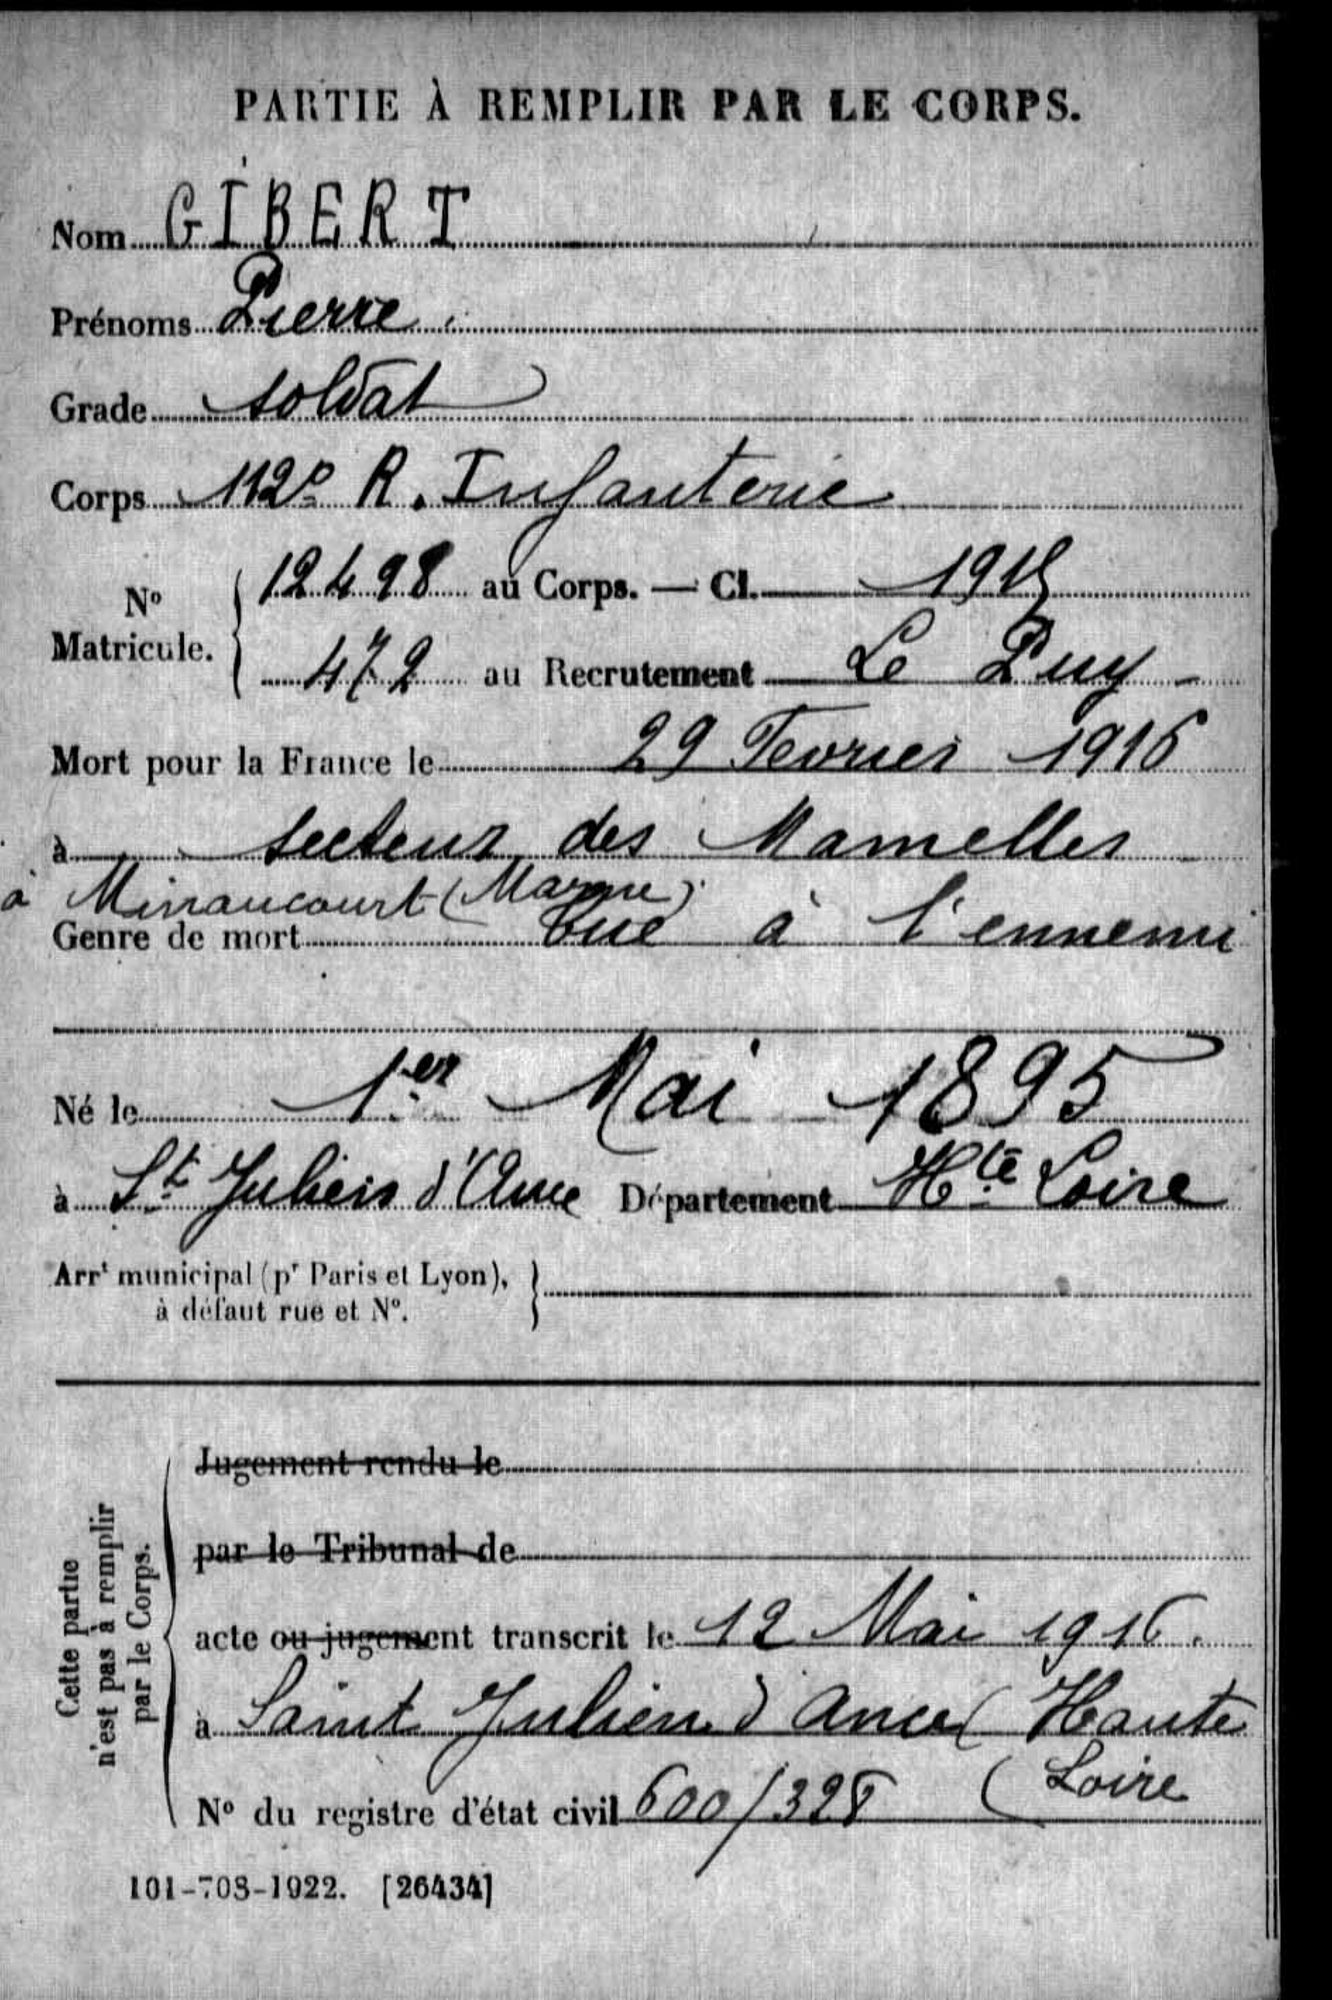 PARTIE À REMPLIR PAR LE CORPS.
Nom GIBERT
Prénoms Pierre
Grade soldat
Corps 112e R. Infanterie
No Matricule. 12498 au Corps. — Cl. 1915
472 au Recrutement Le Puy
Mort pour la France le 29 Fevrier 1916
à secteur des Mamelles
à Minaucourt (Marne)
Genre de mort tué à l'ennemi
Né le 1er Mai 1895
à St Julien d'Ance Département Hte Loire
Arrt municipal (pr Paris et Lyon),
à défaut rue et No.
Cette partie
n'est pas à remplir
par le Corps.
Jugement rendu le
par le Tribunal de
acte ou jugement transcrit le 12 Mai 1916.
à Saint Julien d'Ance (Haute
No du registre d'état civil 600/328 (Loire
101-708-1922. [26434]